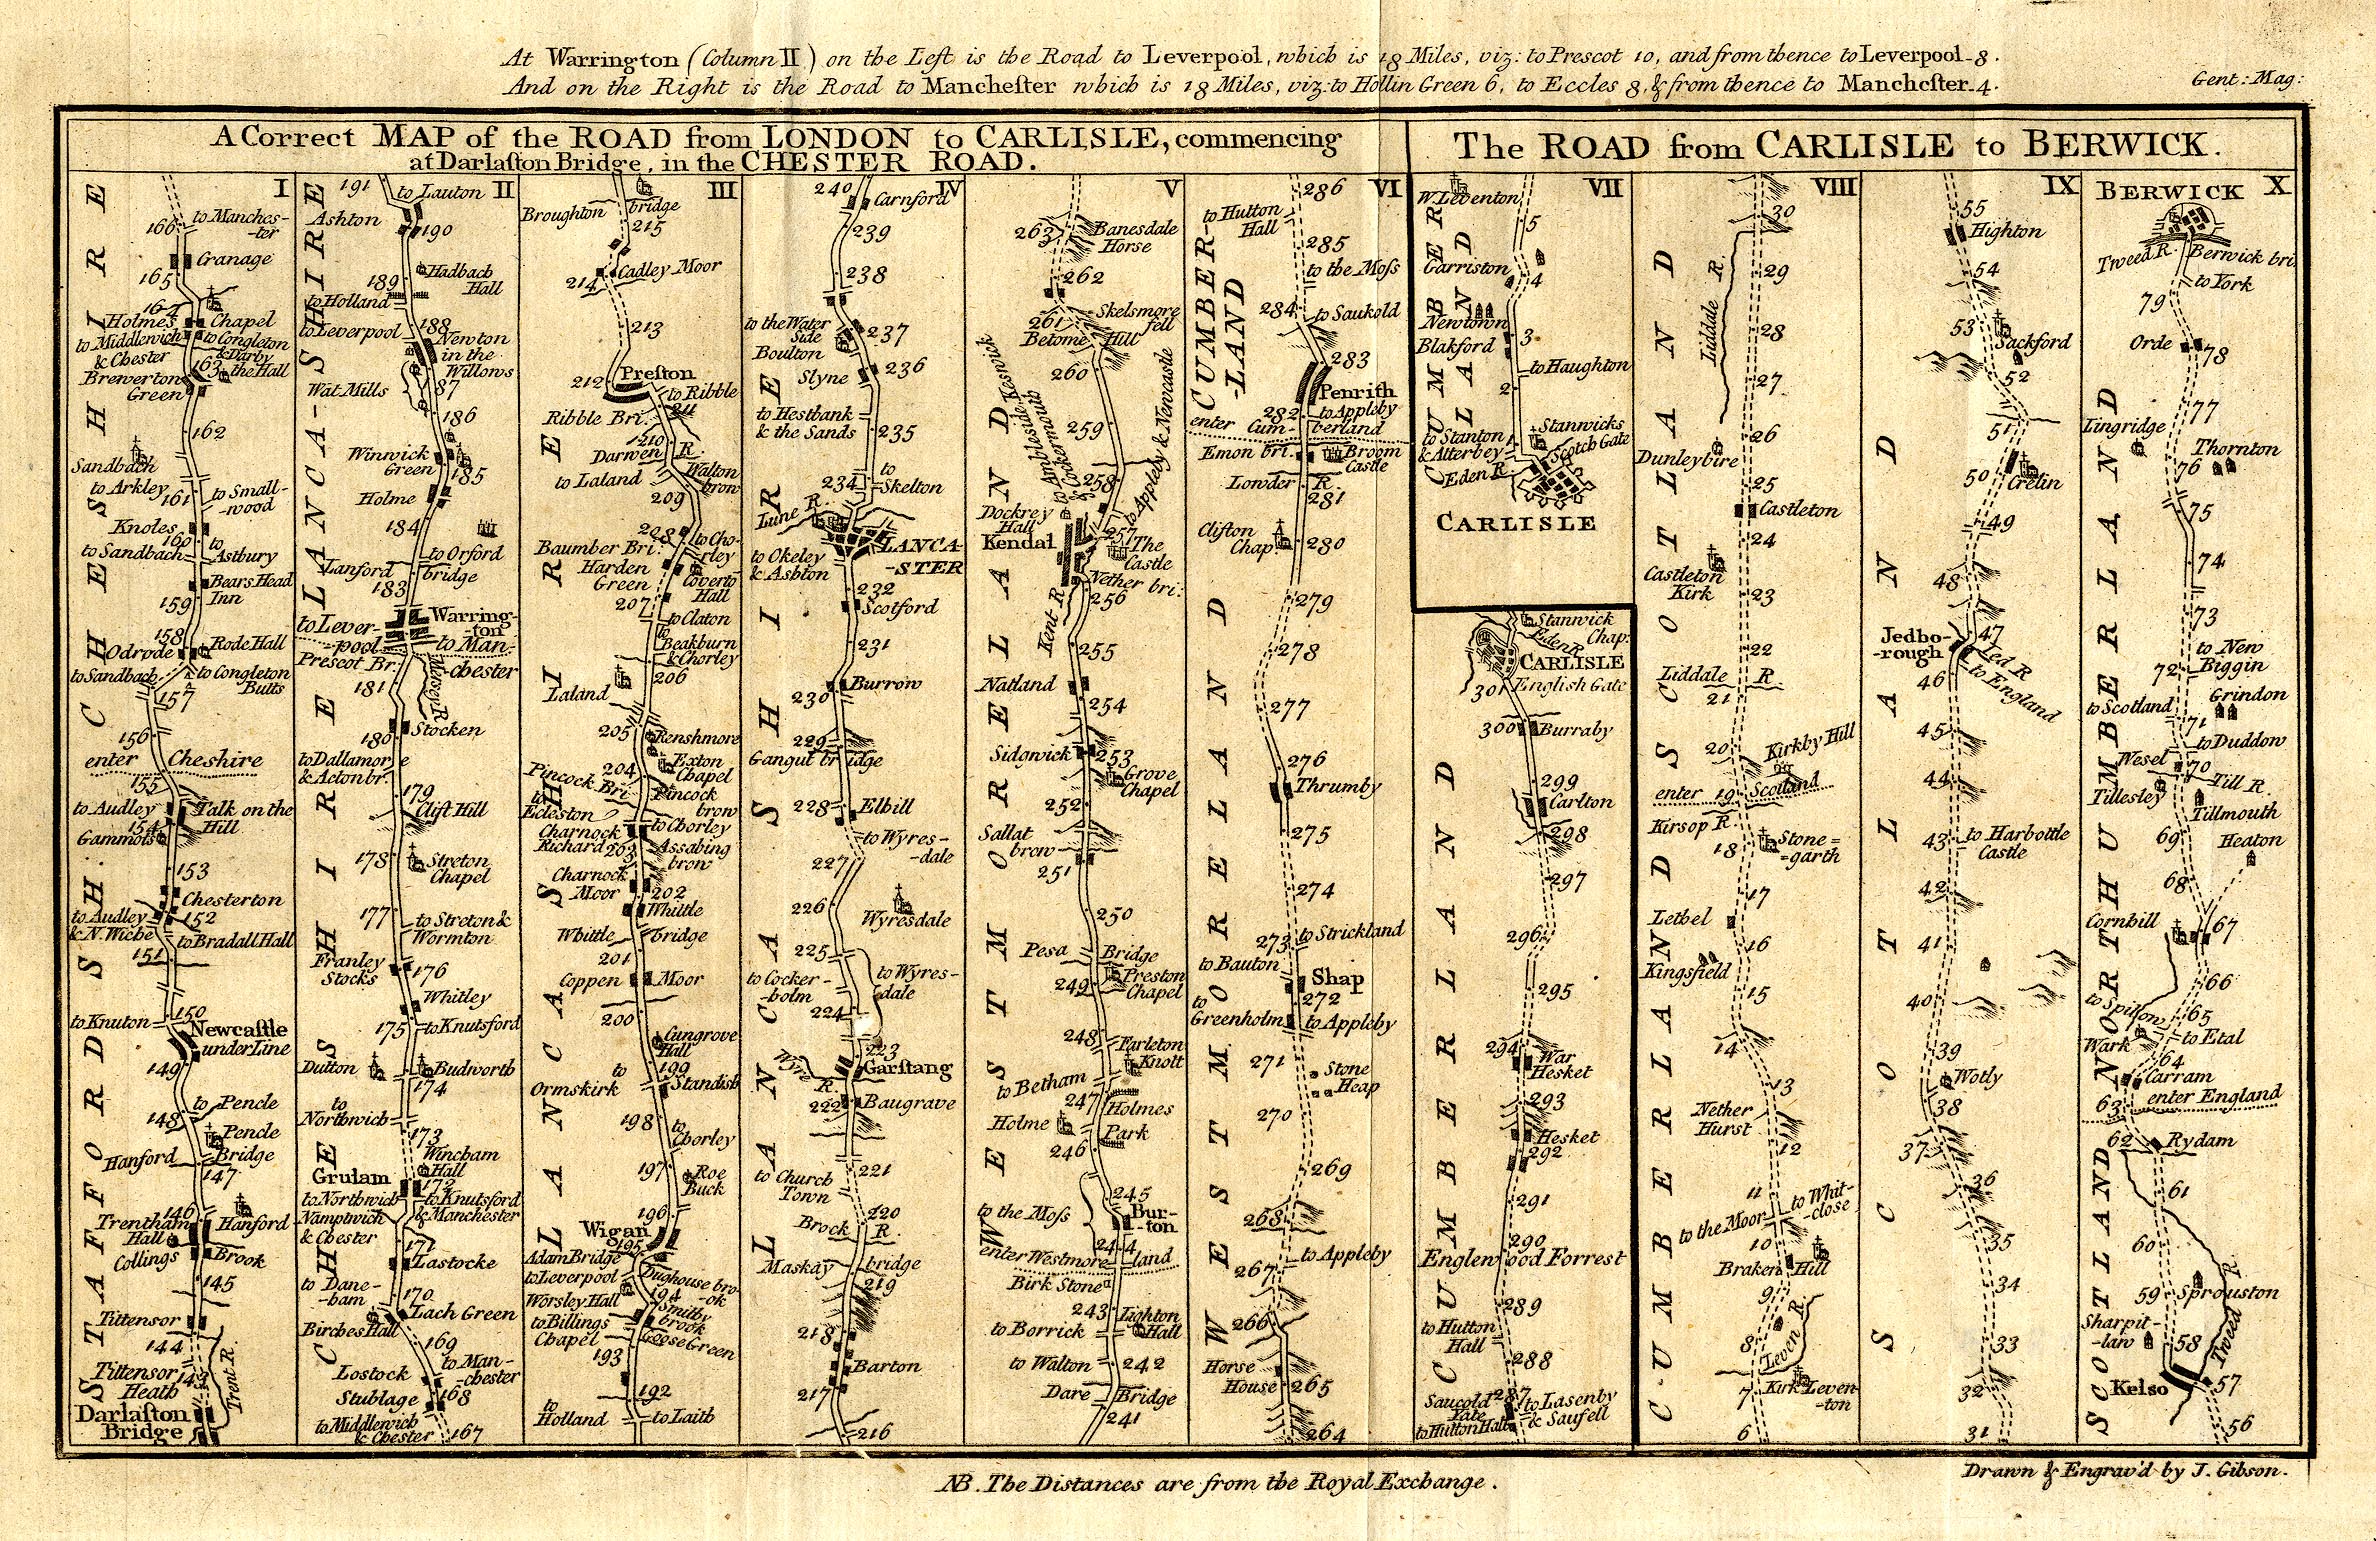 At Warrington (Column II) on the Left is the Road to Leverpool, which is 18 Miles, viz: to Prescot 10, and from thence to Leverpool 8.
And on the Right is the Road to Manchester which is 18 Miles, viz: to Hollin Green 6, to Eccles 8, & from thence to Manchester 4.
Gent: Mag:
A Correct MAP of the ROAD from LONDON to CARLISLE, commencing
at Darlaston Bridge, in the CHESTER ROAD.
The ROAD from CARLISLE to BERWICK.
I
CHESHIRE
166
to Manches-
-ter
Cranage
165
164
Holmes Chapel
to Middlewich
& Chester
to Congleton
& Darby
163
the Hall
Brewerton
Green
162
Sandbach
to Arkley
161
to Small-
-wood
Knoles
160
to Sandbach
to
Astbury
Bears Head
Inn
159
158
Rode Hall
Odrode
to Sandbach
to Congleton
Butts
157
156
enter Cheshire
155
to Audley
Talk on the
Hill
154
Gammots
153
Chesterton
to Audley
& N. Wiche
152
to Bradall Hall
151
150
to Knuton
Newcastle
under Line
149
to Pencle
148
Pencle
Bridge
Hanford
147
146
Trentham
Hall
Hanford
Collings Brook
145
Tittensor
144
Tittensor
Heath
143
Trent R.
Darlaston
Bridge
STAFFORDSH.
II
LANCA-SHIRE
191
to Lauton
Ashton
190
Hadbach
Hall
189
to Holland
to Leverpool
188
Newton
in the
Willows
Wat. Mills
87
186
Winwick
Green
185
Holme
184
to Orford
Lanford bridge
183
Warring-
-ton
to Lever-
-pool
to Man-
-chester
Prescot Br.
Mersey R.
181
Stocken
180
to Dallamore
& Acton br.
179
Clift Hill
178
Streton
Chapel
177
to Streton &
Wormton
Franley
Stocks
176
Whitley
175
to Knutsford
Dutton
Budworth
174
to
Northwich
173
Wincham
Hall
Grulam
172
to Northwich
to Knutsford
& Manchester
Namptwich
& Chester
171
Lastocke
to Dane-
-ham
170
Lach Green
Birches Hall
169
Lostock
to Man-
-chester
Stublage
168
to Middlewich
& Chester
167
CHESHIRE
III
Broughton bridge
215
Cadley Moor
214
213
Preston
212
to Ribble
211
Ribble Bri.
210
Darwen R.
Walton
brow
to Laland
209
208
to Cho-
-rley
Baumber Bri.
Harden
Green
Coverto
Hall
207
to Claton
to
Beakburn
& Chorley
206
Laland
205
Renshmore
204
Exton
Chapel
Pincock Bri.
Pincock
brow
to
Ecleston
to Chorley
Charnock
Richard
203
Assabing
brow
Charnock
Moor
202
Whittle
Whittle bridge
201
Coppen Moor
200
Cungrove
Hall
199
to
Ormskirk
Standish
198
to
Chorley
197
Roe
Buck
196
Wigan
195
Adam Bridge
to Leverpool
Dughouse bro-
-ok
194
Worsley Hall
Smithy
brook
to Billings
Chapel
Goose Green
193
192
to
Holland
to Laith
LANCASHIRE
IV
240
Carnford
239
238
to the Water
Side
237
Boulton
236
Slyne
to Hestbank
& the Sands
235
to
Skelton
234
Lune R.
LANCA-
-STER
to Okeley
& Ashton
232
Scotford
231
Burrow
230
229
Gangut bridge
228
Elbill
to Wyres-
-dale
227
226
Wyresdale
225
to Cocker-
-holm
to Wyres-
-dale
224
223
Wyre R.
Garstang
222
Baugrave
to Church
Town
221
220
Brock R.
Maskay bridge
219
218
Barton
217
216
LANCASHIRE
V
263
Banesdale
Horse
262
261
Skelsmore
fell
Betome Hill
260
to Ambleside, Keswick
& Cockermouth
259
to Appleby & Newcastle
258
Dockrey
Hall
Kendal
257
The
Castle
Nether bri:
Kent R.
256
255
Natland
254
Sidgwick
253
Grove
Chapel
252
Sallat
brow
251
250
Pesa Bridge
249
Preston
Chapel
248
Farleton
Knott
to Betham
247
Holmes
Park
Holme
246
245
to the Moss
Bur-
-ton
244
enter Westmore land
Birk Stone
243
Lighton
Hall
to Borrick
to Walton
242
Dare Bridge
241
WESTMORELAND
VI
CUMBER-
-LAND
286
to Hutton
Hall
285
to the Moss
284
to Saukeld
283
Penrith
282
to Appleby
enter Cum-berland
Emon bri.
Broom
Castle
Lowder R.
281
Clifton
Chap.
280
279
278
277
276
Thrumby
275
274
to Strickland
273
to Bauton
Shap
272
to
Greenholm
to Appleby
271
Stone
Heap
270
269
268
to Appleby
267
266
Horse
House
265
264
WESTMORELAND
VII
CUMBERLAND
W. Leventon
5
Garriston
4
Newtown
3
Blakford
to Haughton
2
Stanwicks
to Stanton
& Alterbey
1
Scotch Gate
Eden R.
CARLISLE
Stanwick
Chap:
Eden R.
CARLISLE
301
English Gate
300
Burraby
299
Carlton
298
297
296
295
294
War
Hesket
293
Hesket
292
291
290
Englewood Forrest
289
to Hutton
Hall
288
Saucold
Yate
287
to Lasenby
& Saufell
to Hutton Hall
CUMBERLAND
VIII
SCOTLAND
30
29
Liddale R.
28
27
26
Dunleybire
25
Castleton
24
Castleton
Kirk
23
22
Liddale R.
21
20
Kirkby Hill
enter Scotland
19
Kirsop R.
18
Stone=
=garth
17
Lethel
16
Kingsfield
15
14
13
Nether
Hurst
12
11
to Whit-
-close
to the Moor
10
Braken Hill
9
8
Leven R.
7
Kirk Leven-
-ton
6
CUMBERLAND
IX
55
Highton
54
53
Sackford
52
51
50
Crelin
49
48
Jedbo-
-rough
47
Jed R
46
to England
45
44
43
to Harbottle
Castle
42
41
40
39
Wotly
38
37
36
35
34
33
32
31
SCOTLAND
X
BERWICK
Tweed R.
Berwick bri.
to York
79
Orde
78
77
Lingridge
Thornton
76
75
74
73
to New
Biggin
72
Grindon
to Scotland
71
to Duddow
Wesel
70
Till R.
Tillesley
Tillmouth
69
Heaton
68
Cornhill
67
66
65
to Spilton
to Etal
Wark
64
Carram
63
enter England
62
Rydam
61
60
59
Sprouston
Sharpit-
-law
58
Tweed R.
Kelso
57
56
NORTHUMBERLAND
SCOTLAND
NB. The Distances are from the Royal Exchange.
Drawn & Engrav'd by J. Gibson.